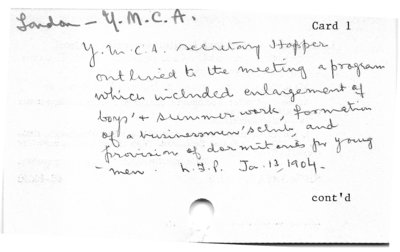 London - Y.M.C.A.
Card 1
Y.M.C.A. secretary Hopper
outlined to the meeting a program
which included enlargement of
boys' + summer work, formation
of a businessmen's club, and
provision of dormitories for young
- men. L.F.P. Ja. 13, 1904.
cont'd